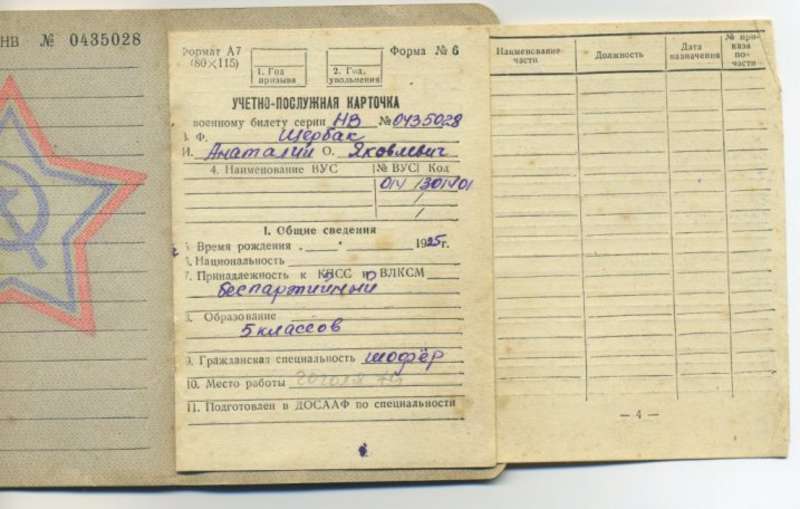 НВ № 0435028
Формат А7
(80×115)
Форма № 6
1. Год
призыва
2. Год
увольнения
УЧЕТНО-ПОСЛУЖНАЯ КАРТОЧКА
военному билету серии НВ № 0435028
3. Ф. Щербак
И. Анаталий О. Яковлевич
4. Наименование ВУС
№ ВУС
Код
014 301401
I. Общие сведения
5. Время рождения 1925 г.
6. Национальность
7. Принадлежность к КПСС и ВЛКСМ
беспартийный
8. Образование
5 классов
9. Гражданская специальность шофёр
10. Место работы
11. Подготовлен в ДОСААФ по специальности
Наименование
части
Должность
Дата
назначения
№ при-
каза
по
части
— 4 —